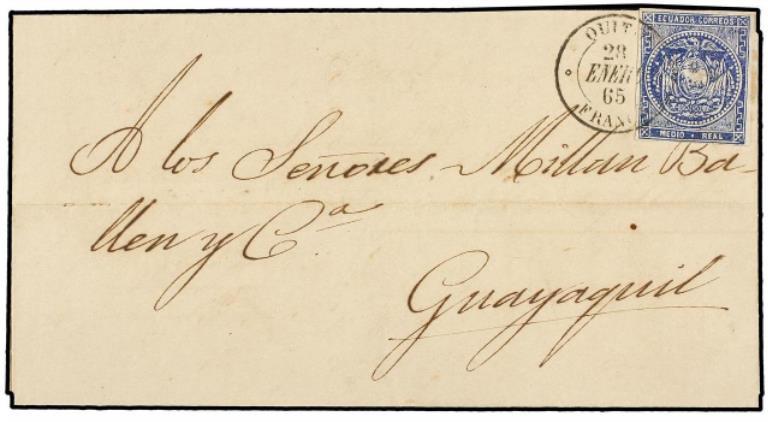 ECUADOR CORREOS
MEDIO REAL
QUIT
28
ENER
65
FRANC
A los Señores Millan Ba-
llen y Cª
Guayaquil